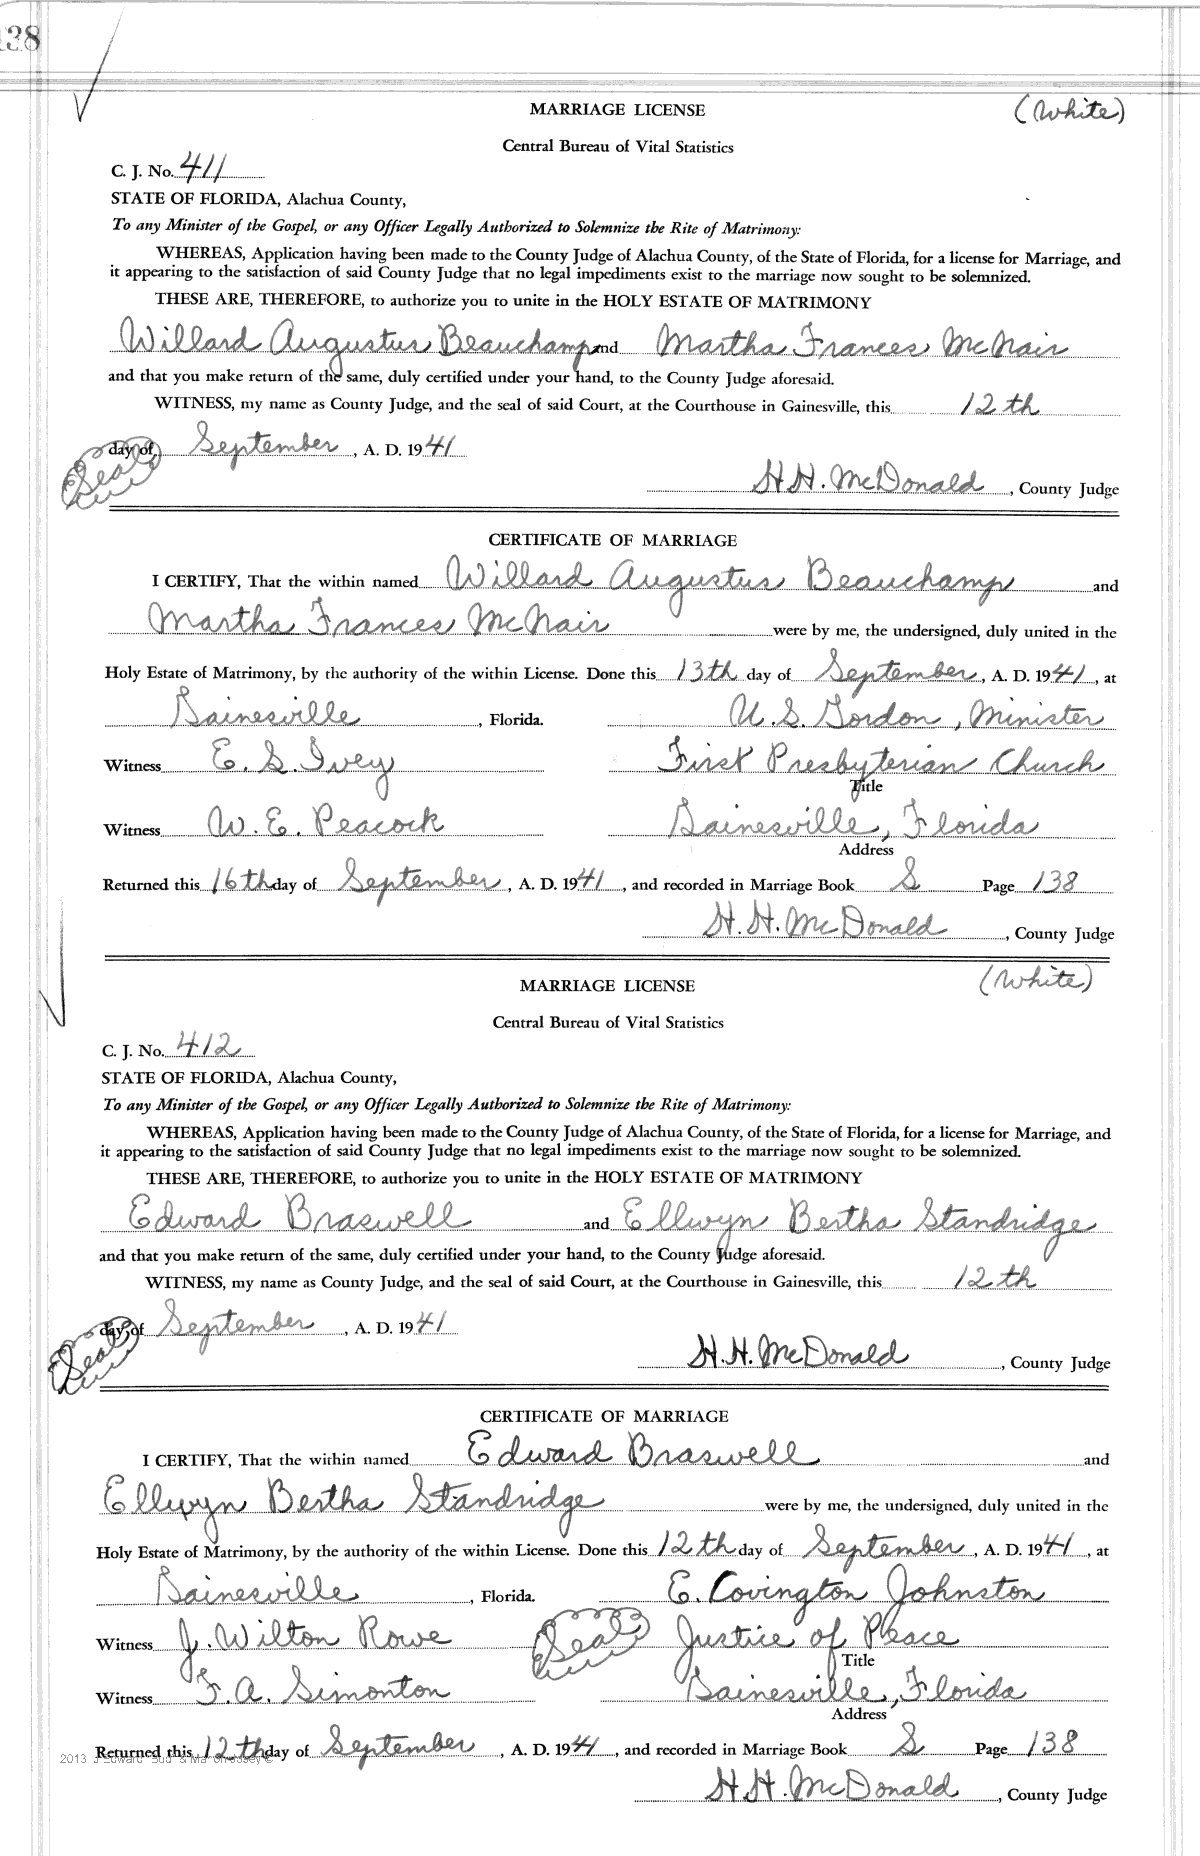 138
MARRIAGE LICENSE (White)
Central Bureau of Vital Statistics
C. J. No. 411
STATE OF FLORIDA, Alachua County,
To any Minister of the Gospel, or any Officer Legally Authorized to Solemnize the Rite of Matrimony:
WHEREAS, Application having been made to the County Judge of Alachua County, of the State of Florida, for a license for Marriage, and
it appearing to the satisfaction of said County Judge that no legal impediments exist to the marriage now sought to be solemnized.
THESE ARE, THEREFORE, to authorize you to unite in the HOLY ESTATE OF MATRIMONY
Willard Augustus Beauchamp and Martha Frances McNair
and that you make return of the same, duly certified under your hand, to the County Judge aforesaid.
WITNESS, my name as County Judge, and the seal of said Court, at the Courthouse in Gainesville, this 12th
day of September, A. D. 1941
Seal
H.H. McDonald, County Judge
CERTIFICATE OF MARRIAGE
I CERTIFY, That the within named Willard Augustus Beauchamp and
Martha Frances McNair were by me, the undersigned, duly united in the
Holy Estate of Matrimony, by the authority of the within License. Done this 13th day of September, A. D. 1941, at
Gainesville, Florida. U. S. Gordon, Minister
Witness E. S. Ivey First Presbyterian Church
Title
Witness W. E. Peacock Gainesville, Florida
Address
Returned this 16th day of September, A. D. 1941, and recorded in Marriage Book S Page 138
H. H. McDonald, County Judge
MARRIAGE LICENSE (White)
Central Bureau of Vital Statistics
C. J. No. 412
STATE OF FLORIDA, Alachua County,
To any Minister of the Gospel, or any Officer Legally Authorized to Solemnize the Rite of Matrimony:
WHEREAS, Application having been made to the County Judge of Alachua County, of the State of Florida, for a license for Marriage, and
it appearing to the satisfaction of said County Judge that no legal impediments exist to the marriage now sought to be solemnized.
THESE ARE, THEREFORE, to authorize you to unite in the HOLY ESTATE OF MATRIMONY
Edward Braswell and Ellwyn Bertha Standridge
and that you make return of the same, duly certified under your hand, to the County Judge aforesaid.
WITNESS, my name as County Judge, and the seal of said Court, at the Courthouse in Gainesville, this 12th
day of September, A. D. 1941
Seal
H.H. McDonald, County Judge
CERTIFICATE OF MARRIAGE
I CERTIFY, That the within named Edward Braswell and
Ellwyn Bertha Standridge were by me, the undersigned, duly united in the
Holy Estate of Matrimony, by the authority of the within License. Done this 12th day of September, A. D. 1941, at
Gainesville, Florida. E. Covington Johnston
Witness J. Wilton Rowe Seal Justice of Peace
Title
Witness F. A. Simonton Gainesville, Florida
Address
Returned this 12th day of September, A. D. 1941, and recorded in Marriage Book S Page 138
2013 J Edward
H.H. McDonald, County Judge